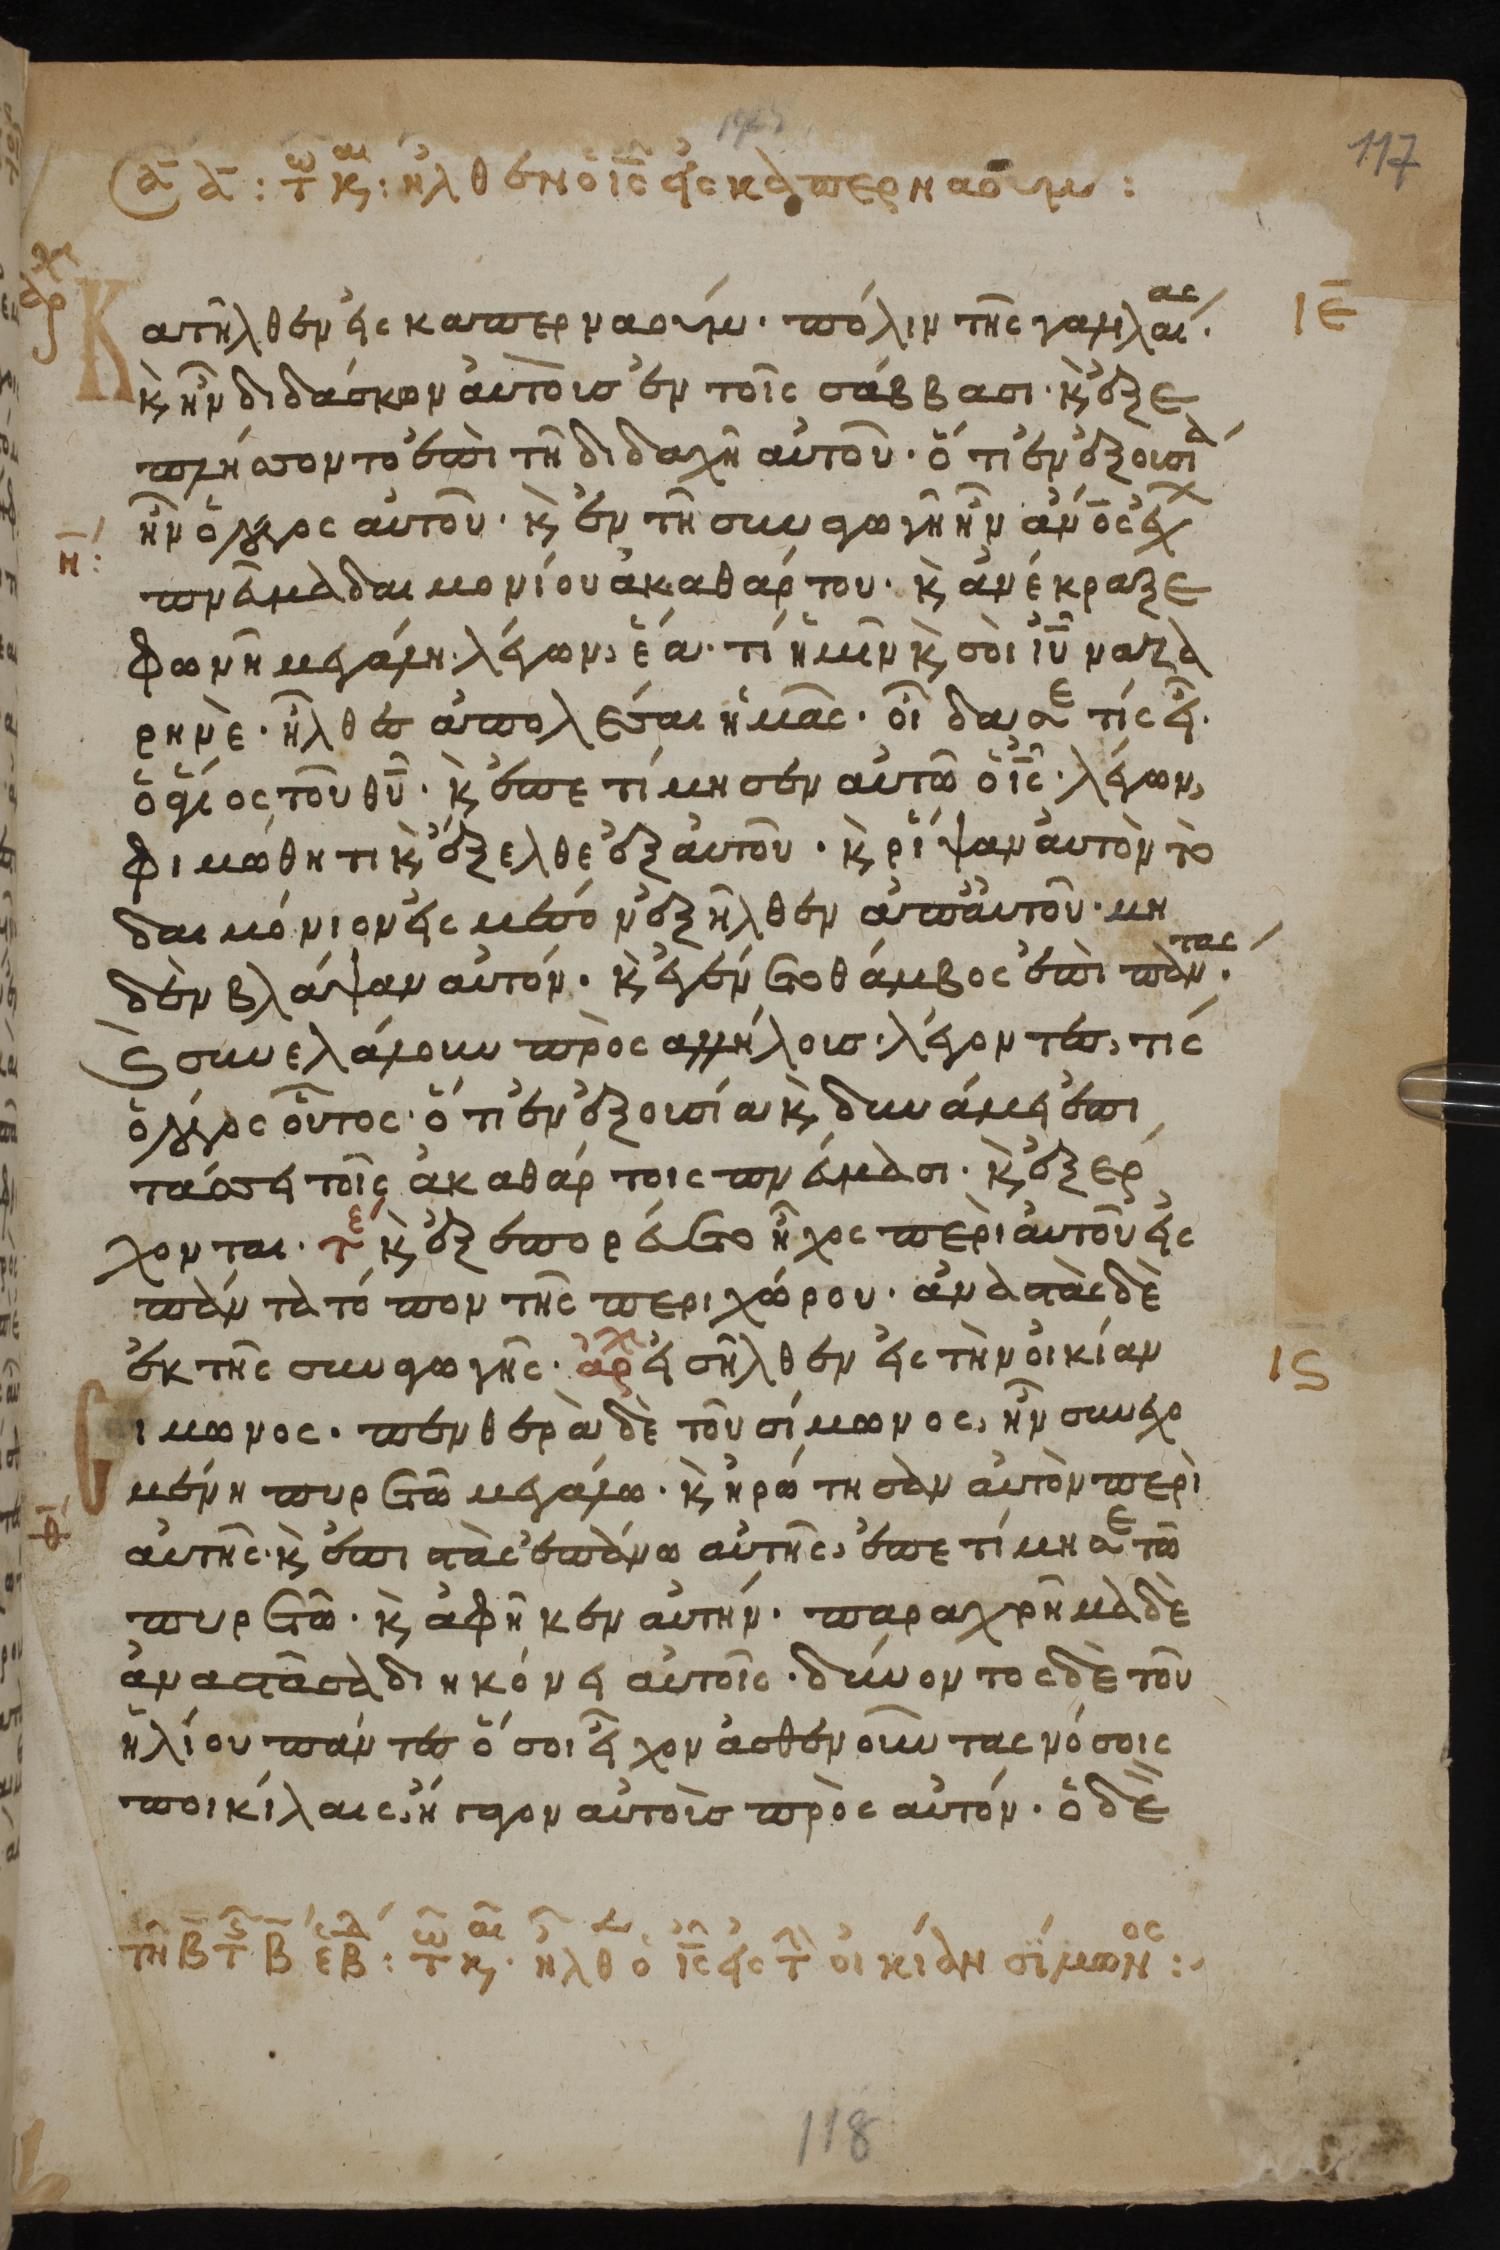 117
ᾱ ᾱ: τῶ κ(αι): ἦλθεν ὁ ις εἰς καπερναούμ:
ΙΕ
αρχ
Κατῆλθεν εἰς καπερναούμ. πόλιν τῆς γαλιλαίας.
κ ἦν διδάσκων αὐτοὺς ἐν τοῖς σάββασι. κ ἐξε
πλήσσοντο ἐπὶ τῆ διδαχῆ αὐτοῦ. ὅτι ἐν ἐξουσία
ἦν ὁ λόγος αὐτοῦ. κ ἐν τῆ συναγωγῆ ἦν ἀνος ἔχ
η:
πνεῦμα δαιμονίου ἀκαθάρτου. κ ἀνέκραξε
φωνῆ μεγάλη. λέγων, ἔα. τί ἡμῖν κ σοὶ ιυ ναζα
ρηνὲ. ἦλθες ἀπολέσαι ἡμᾶς. οἶδα σε τίς εἶ.
ὁ ἅγιος τοῦ θυ. κ ἐπετίμησεν αὐτῶ ὁ ις. λέγων,
φιμώθητι κ ἔξελθε ἐξ αὐτοῦ. κ ρίψαν αὐτὸν τὸ
δαιμόνιον εἰς μέσον ἐξῆλθεν ἀπ αὐτοῦ. μη
δὲν βλάψαν αὐτόν. κ ἐγένετο θάμβος ἐπὶ πάντας.
κ συνελάλουν πρὸς ἀλλήλους. λέγοντες, τίς
ὁ λόγος οὗτος. ὅτι ἐν ἐξουσία κ δυνάμει ἐπι
τάσσει τοῖς ἀκαθάρτοις πνεύμασι. κ ἐξέρ
χονται. τε κ ἐξεπορεύετο ἦχος περὶ αὐτοῦ εἰς
πάντα τόπον τῆς περιχώρου. ἀναστὰς δὲ
ἐκ τῆς συναγωγῆς. αρχ εἰσῆλθεν εἰς τὴν οἰκίαν
Ις
Σίμωνος. πενθερὰ δὲ τοῦ σίμωνος, ἦν συνεχο
μένη πυρετῶ μεγάλω. κ ἠρώτησαν αὐτὸν περὶ
θ
αὐτῆς. κ ἐπιστὰς ἐπάνω αὐτῆς, ἐπετίμησε τῶ
πυρετῶ. κ ἀφῆκεν αὐτήν. παραχρῆμα δὲ
ἀναστᾶσα διηκόνει αὐτοῖς. δύνοντος δὲ τοῦ
ἡλίου πάντες ὅσοι εἶχον ἀσθενοῦντας νόσοις
ποικίλαις, ἤγαγον αὐτοὺς πρὸς αὐτόν. ὁ δὲ
τῆ β τς β εβδ: τῶ κ(αι). ἦλθ ὁ ις εἰς τ οἰκίαν σίμωνος:
118